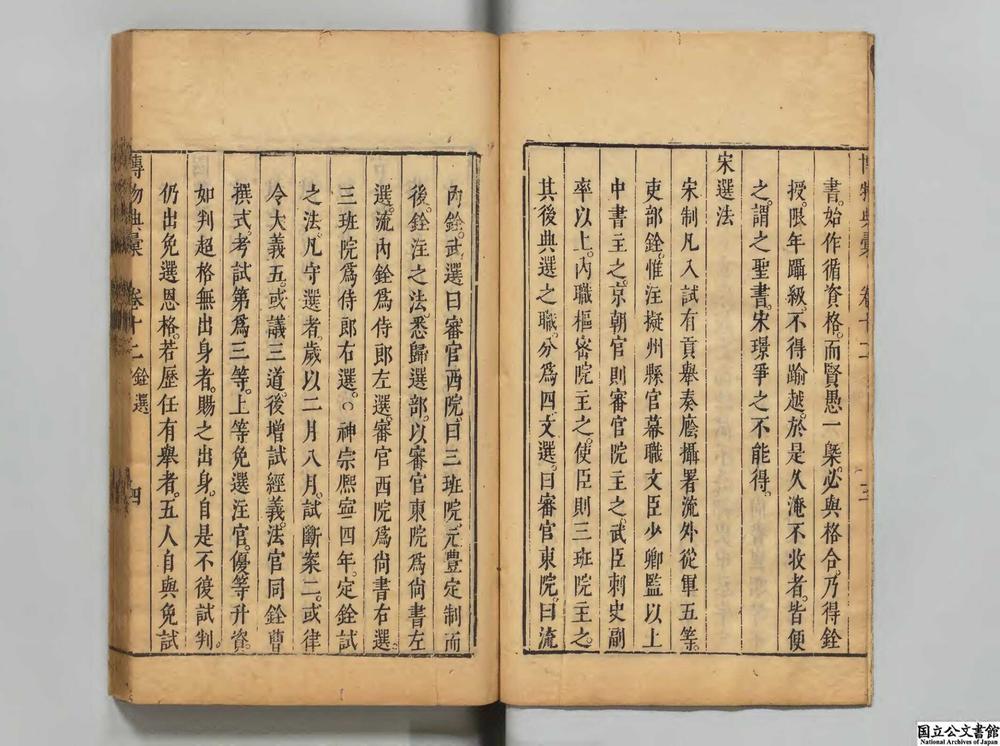 博物典彙 卷十二 三
書。始作循資格。而賢愚一槩。必與格合。乃得銓
授。限年躡級。不得踰越。於是久淹不收者。皆便
之。謂之聖書。宋璟爭之不能得。
宋選法
宋制凡入試有貢舉奏廕攝署流外從軍五等。
吏部銓。惟注擬州縣官幕職文臣少卿監以上
中書主之。京朝官則審官院主之。武臣刺史副
率以上。內職樞密院主之。使臣則三班院主之。
其後典選之職。分爲四。文選。曰審官東院。曰流
內銓。武選曰審官西院。曰三班院。元豐定制而
後。銓注之法。悉歸選部。以審官東院爲尙書左
選。流內銓爲侍郎左選。審官西院爲尙書右選。
三班院爲侍郎右選。○神宗熙寧四年。定銓試
之法。凡守選者。歲以二月八月。試斷案二。或律
令大義五。或議三道。後增試經義。法官同銓曹
撰式。考試第爲三等。上等免選注官。優等升資。
如判超格無出身者。賜之出身。自是不復試判。
仍出免選恩格。若歷任有舉者。五人自與免試
博物典彙 卷十二 銓選 四
国立公文書館
National Archives of Japan